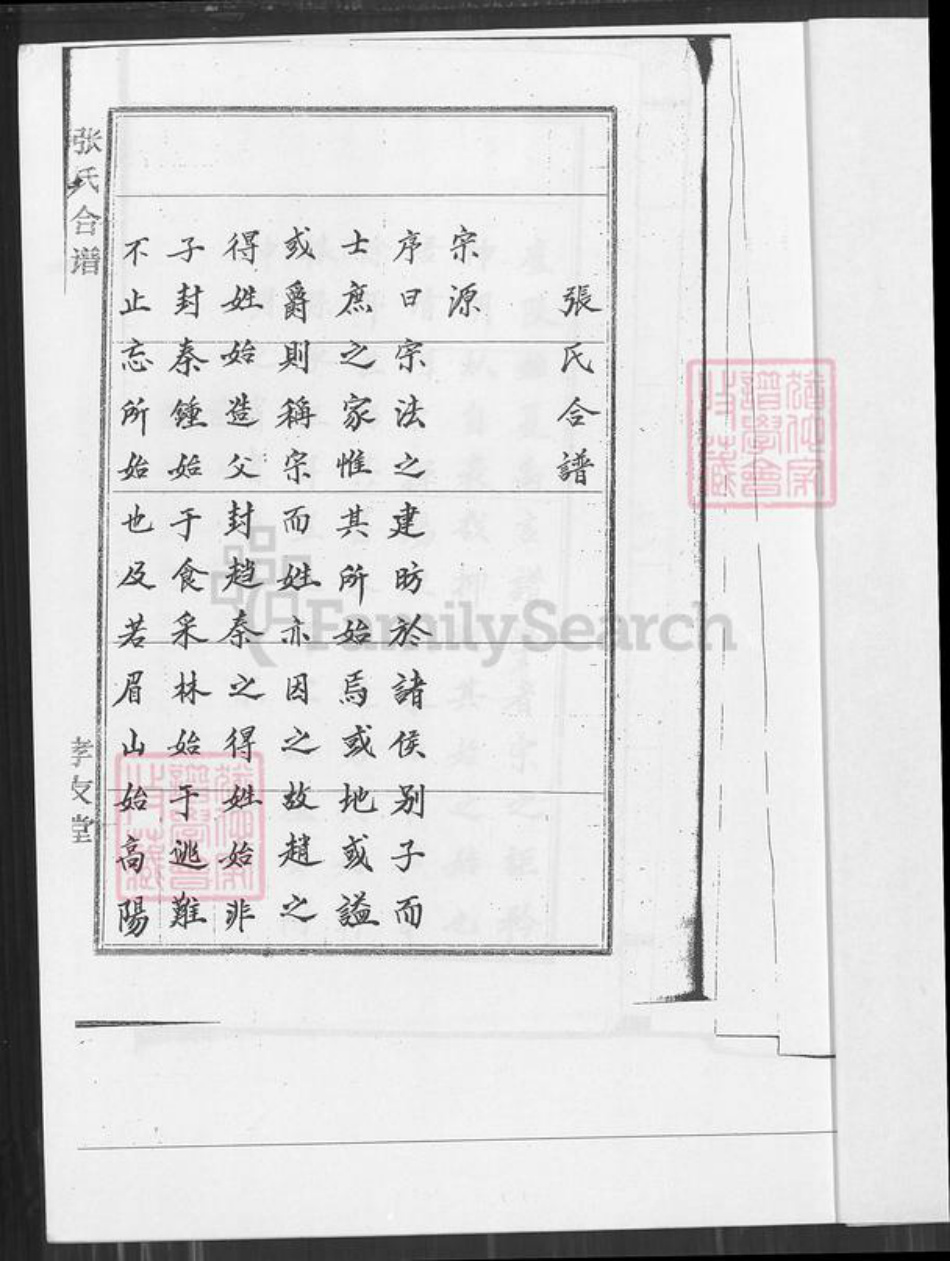 張氏合譜
宗源
序曰宗法之建昉於諸侯别子而
士庶之家惟其所始焉或地或謚
或爵則稱宗而姓亦因之故趙之
得姓始造父封趙秦之得姓始非
子封秦鍾始于食采林始于逃難
不止忘所始也及若眉山始高陽
张氏合谱
孝友堂
FamilySearch